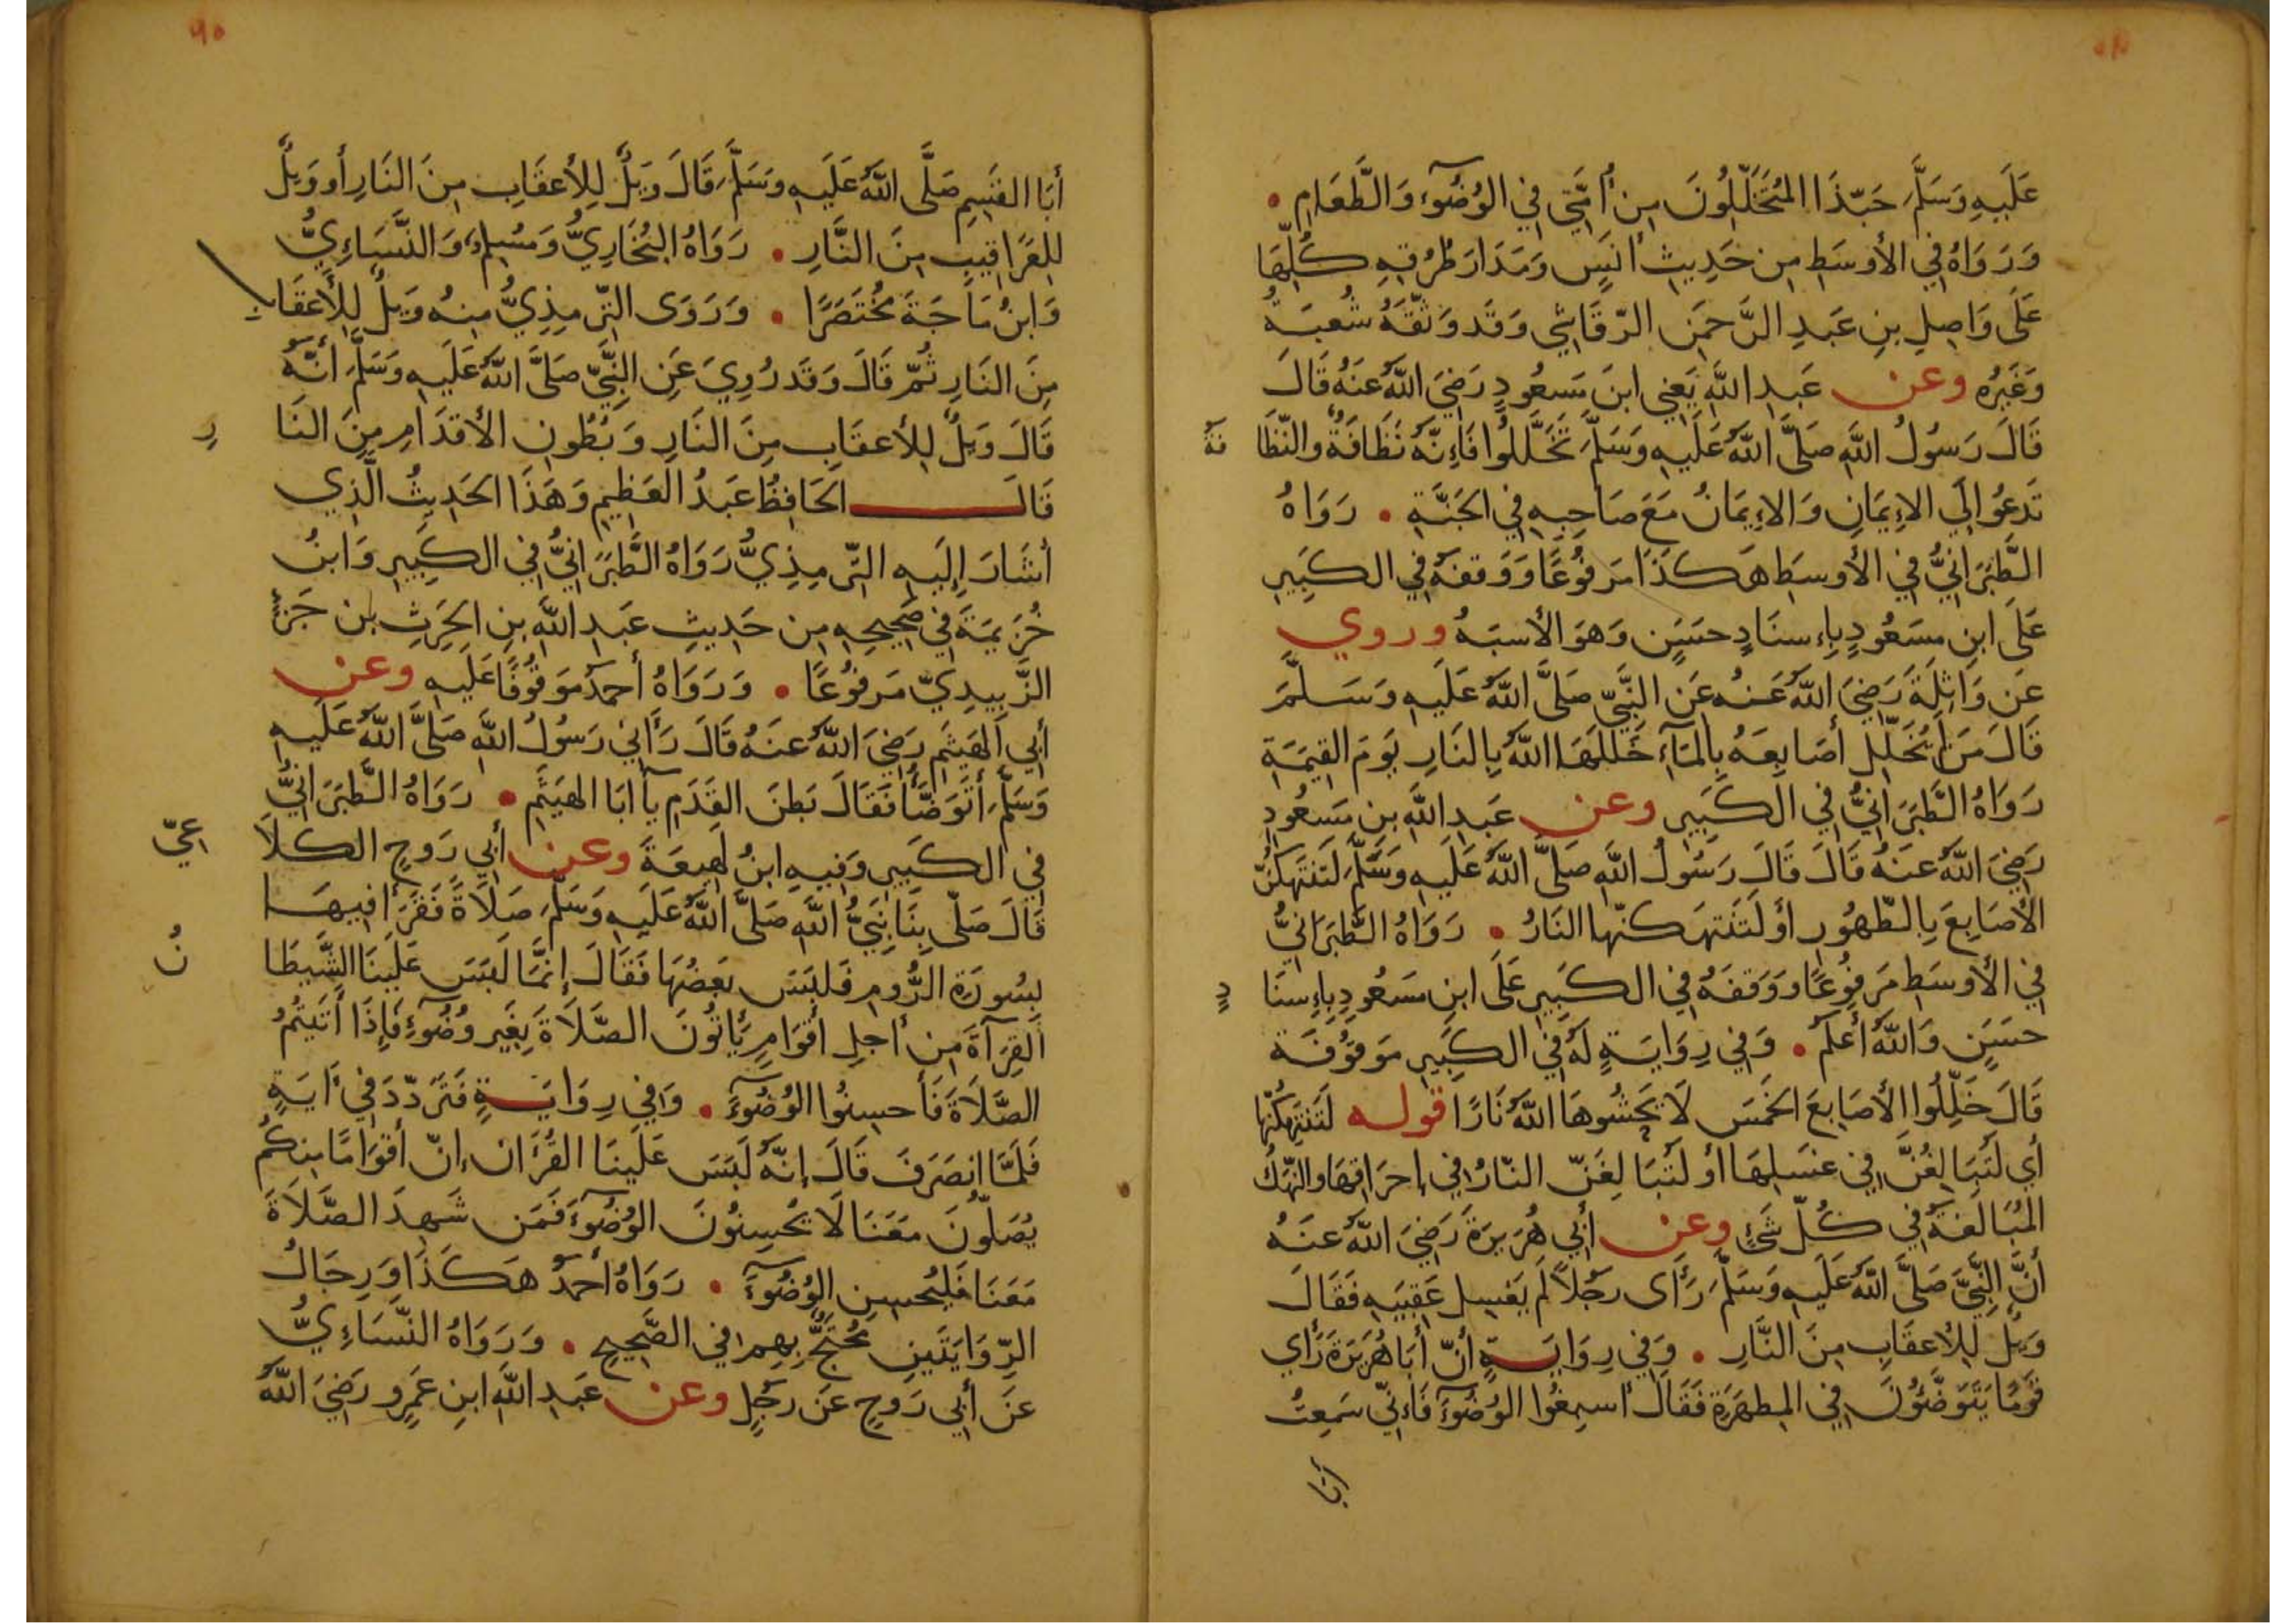 عَلَيهِ وَسَلَّمَ حَبّذَا المُتَخَلِّلُونَ مِن أُمَّتِي فِي الوُضُوءِ وَالطَّعَامِ •
وَرَوَاهُ فِي الأَوسَطِ مِن حَدِيثِ أَنَسٍ وَمَدَارَ طُرُقِهِ كُلِّهَا
عَلَى وَاصِلِ بنِ عَبدِ الرَّحمَنِ الرّقَاشِي وَقَد وَثّقَهُ شُعبَةُ
وَغَيرُه وعن عَبدِ اللَّهِ يَعنِي ابنَ مَسعُودٍ رَضِيَ اللَّهُ عَنهُ قَالَ
قَالَ رَسُولُ اللَّهِ صَلَّى اللَّهُ عَلَيهِ وَسَلَّمَ تَخَلَّلُوا فَإِنّهُ نَظَافَةٌ وَالنّظَا فَةُ
تَدعُو إِلَى الإِيمَانِ وَالإِيمَانُ مَعَ صَاحِبِهِ فِي الجَنَّةِ • رَوَاهُ
الطَّبَرَانِيُّ فِي الأَوسَطِ هَكَذَا مَرفُوعًا وَوَقفَهُ فِي الكَبِيرِ
عَلَى ابنِ مَسعُودٍ بِإِسنَادٍ حَسَنٍ وَهوَ الأَسبَهُ وروي
عَن وَاثِلَةَ رَضِيَ اللَّهُ عَنهُ عَنِ النَّبِيّ صَلَّى اللَّهُ عَلَيهِ وَسَلَّمَ
قَالَ مَن لَم يُخَلِّل أَصَابِعَهُ بِالمَآءِ خَلَلَهَا اللَّهُ بِالنَارِ يَومَ القِيمَةِ
رَوَاهُ الطَّبَرَانِيُّ فِي الكَبِيرِ وعن عَبدِ اللَّهِ بنِ مَسعُودٍ
رَضِيَ اللَّهُ عَنهُ قَالَ قَالَ رَسُولُ اللَّهِ صَلَّى اللَّهُ عَلَيهِ وَسَلَّمَ لَتَنتَهِكُنّ
الأَصَابِعَ بِالطّهُورِ أَو لَتَنتَهِكَنّهَا النَارُ • رَوَاهُ الطَّبَرَانِيُّ
فِي الأَوسَطِ مَرفُوعًا وَوَقفَهُ فِي الكَبِيرِ عَلَى ابنِ مَسعُودٍ بِإِسنَا دٍ
حَسَنٍ وَاللَّهُ أَعلَم • وَفِي رِوَايَةٍ لَهُ فِي الكَبِيرِ مَوقُوفَة
قَالَ خَلِّلُوا الأَصَابِعَ الخَمسَ لَا يَحشُوهَا اللَّهُ نَارًا قوله لَتَنتَهِكُنّهَا
أَي لَتُبَالِغُنَّ فِي غَسلِهَا أَو لَتُبَالِغَنّ النّارُ فِي إِحرَاقِهَا وَالنّهكُ
المُبَالَغَةُ فِي كُلّ شَيءٍ وعن أَبِي هُرَيرَةَ رَضِيَ اللَّهُ عَنهُ
أَنَّ النَّبِيَّ صَلَّى اللَّهُ عَلَيهِ وَسَلَّمَ رَأَى رَجُلاً لَم يَغسِل عَقِبَيهِ فَقَالَ
وَيلٌ لِلأَعقَابِ مِنَ النَّارِ • وَفِي رِوَايَةٍ أَنّ أَبَا هُرَيرَةَ رَأَي
قَومًا يَتَوَضَّؤُنَ فِي المِطهَرَةِ فَقَالَ أَسبِغُوا الوُضُوءَ فَإِنّي سَمِعتُ
أَبَا
٩٠
أَبَا القَسِمِ صَلَّى اللَّهُ عَلَيهِ وَسَلَّمَ قَالَ وَيلٌ لِلأَعقَابِ مِنَ النَارِ أَو وَيلٌ
لِلعَرَاقِيبِ مِنَ النَّارِ • رَوَاهُ البُخَارِيُّ وَمُسلِمٌ وَالنَّسَاءِيُّ
وَابنُ مَاجَةَ مُختَصَرًا • وَرَوَى التّرمِذِيُّ مِنهُ وَيلٌ لِلأَعقَابِ
مِنَ النَارِ ثُمّ قَالَ وَقَد رُوِيَ عَنِ النَّبِيّ صَلَّى اللَّهُ عَلَيهِ وَسَلَّمَ أَنَّهُ
قَالَ وَيلٌ لِلأَعقَابِ مِنَ النَارِ وَبُطُونِ الأَقدَامِ مِنَ النَا رِ
قَالَ الحَافِظُ عَبدُ العَظِيمِ وَهَذَا الحَدِيثُ الَّذِي
أَشَارَ إِلَيهِ التّرمِذِيُّ رَوَاهُ الطَّبَرَانِيُّ فِي الكَبِيرِ وَابنُ
خُزَيمَةَ فِي صَحِيحِهِ مِن حَدِيثِ عَبدِ اللَّهِ بنِ الحَرِثِ بنِ جَزءٍ
الزُّبَيدِيّ مَرفُوعًا • وَرَوَاهُ أَحمَدُ مَوقُوفًا عَلَيهِ وعن
أَبِي الهَيثَمِ رَضِيَ اللَّهُ عَنهُ قَالَ رَأَانِي رَسُولُ اللَّهِ صَلَّى اللَّهُ عَلَيهِ
وَسَلَّمَ أَتَوَضَّأُ فَقَالَ بَطنَ القَدَمِ يَآ أَبَا الهَيثَمِ • رَوَاهُ الطَّبَرَانِيُّ
فِي الكَبِيرِ وَفِيهِ ابنُ لَهِيعَةَ وعن أَبِي رَوحٍ الكَلَا عِيّ
قَالَ صَلّى بِنَا نَبِيُّ اللَّهِ صَلَّى اللَّهُ عَلَيهِ وَسَلَّمَ صَلَاةً فَقَرَأَ فِيهَا
بِسُورَةِ الرُّومِ فَلَبَسَ بَعضُهَا فَقَالَ إِنَّمَا لَبَسَ عَلَينَا الشَّيطَا نُ
القِرَآةَ مِن أَجلِ أَقوَامٍ يَأتُونَ الصَّلَاةَ بِغَيرِ وُضُوءٍ فَإِذَا أَتَيتُمُ
الصَّلَاةَ فَأَحسِنُوا الوُضُوءَ • وَفِي رِوَايَةٍ فَتَرَدّدَ فِي أَيَةٍ
فَلَمّا انصَرَفَ قَالَ إِنّهُ لَبَسَ عَلَينَا القُرأَانَ إِنّ أَقوَامًا مِنكُم
يُصَلّونَ مَعَنَا لَا يُحسِنُونَ الوُضُوءَ فَمَن شَهِدَ الصَّلَاةَ
مَعَنَا فَليُحسِنِ الوُضُوءَ • رَوَاهُ أَحمَدُ هَكَذَا وَرِجَالُ
الرّوَايَتَينِ مُحتَجٌّ بِهِم فِي الصَّحِيحِ • وَرَوَاهُ النّسَاءِيُّ
عَن أَبِي رَوحٍ عَن رَجُلٍ وعن عَبدِ اللَّهِ ابنِ عَمرٍو رَضِيَ اللَّهُ